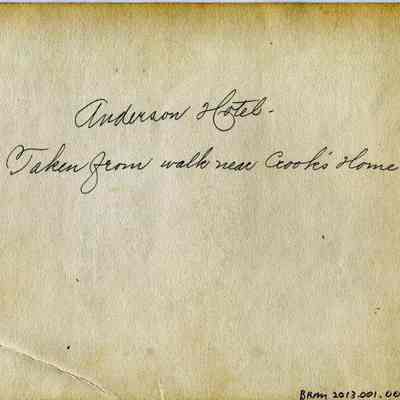 Anderson Hotel-
Taken from walk near Crook's Home
BRM 2013.001.00